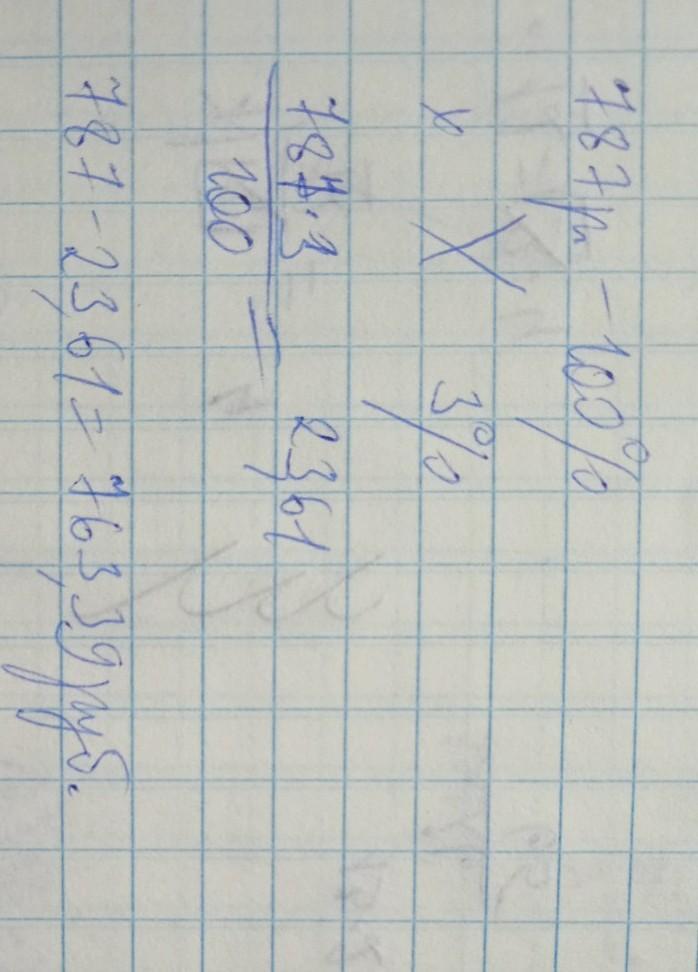 787р – 100%
х 3%
787·3
100
= 23,61
787 – 23,61 = 763,39 руб.